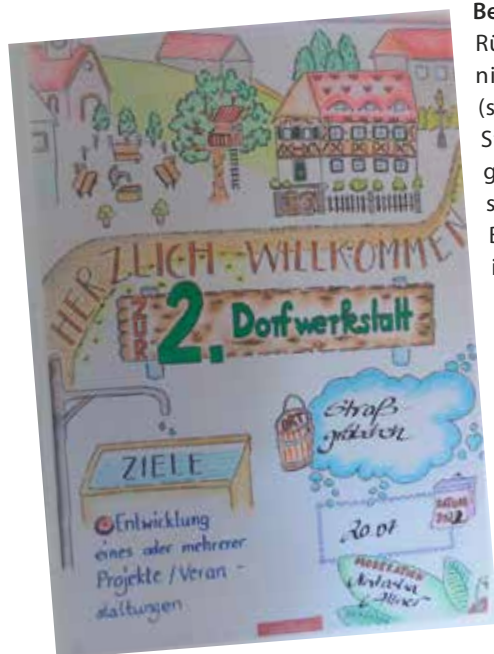 HERZLICH WILLKOMMEN
ZUR
2. Dorfwerkstatt
ZIELE
Entwicklung
eines oder mehrerer
Projekte / Veran-
staltungen
ORT
Straß
gräbchen
DATUM
20.07
MODERATION
Be
Rü
ni
(s
S
g
s
E
i